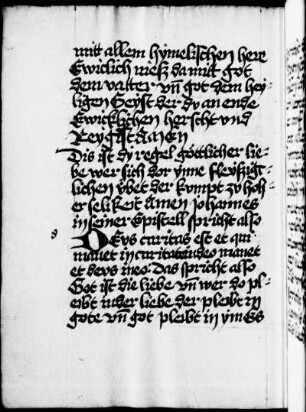 mitt allem hymelischen here
Ewiclich mesz damit got
dem vatter vn̄ got dem hey
ligen Geyst der dy an ende
Ewicklichen herscht vnd
Reygist AMEN
Dis ist dy regel gottlicher lie
be wer sich dor ynne fleyszigt
lichen vbet der kumpt zu hoh
er selikeit Amen Johannes
in seiner Epistell spricht also
DEus caritas est et qui
manet in caritate in deo manet
et deus in eo Das spricht also
Got ist die liebe vn̄ wer do ple
ibt in der liebe der pleibt in
gote vn̄ got pleibt in ym Es